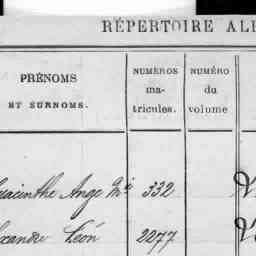 RÉPERTOIRE AL
PRÉNOMS ET SURNOMS.
NUMÉROS ma- tricules.
NUMÉRO du volume
Hyacinthe Ange Mie 332
Alexandre Léon 2277